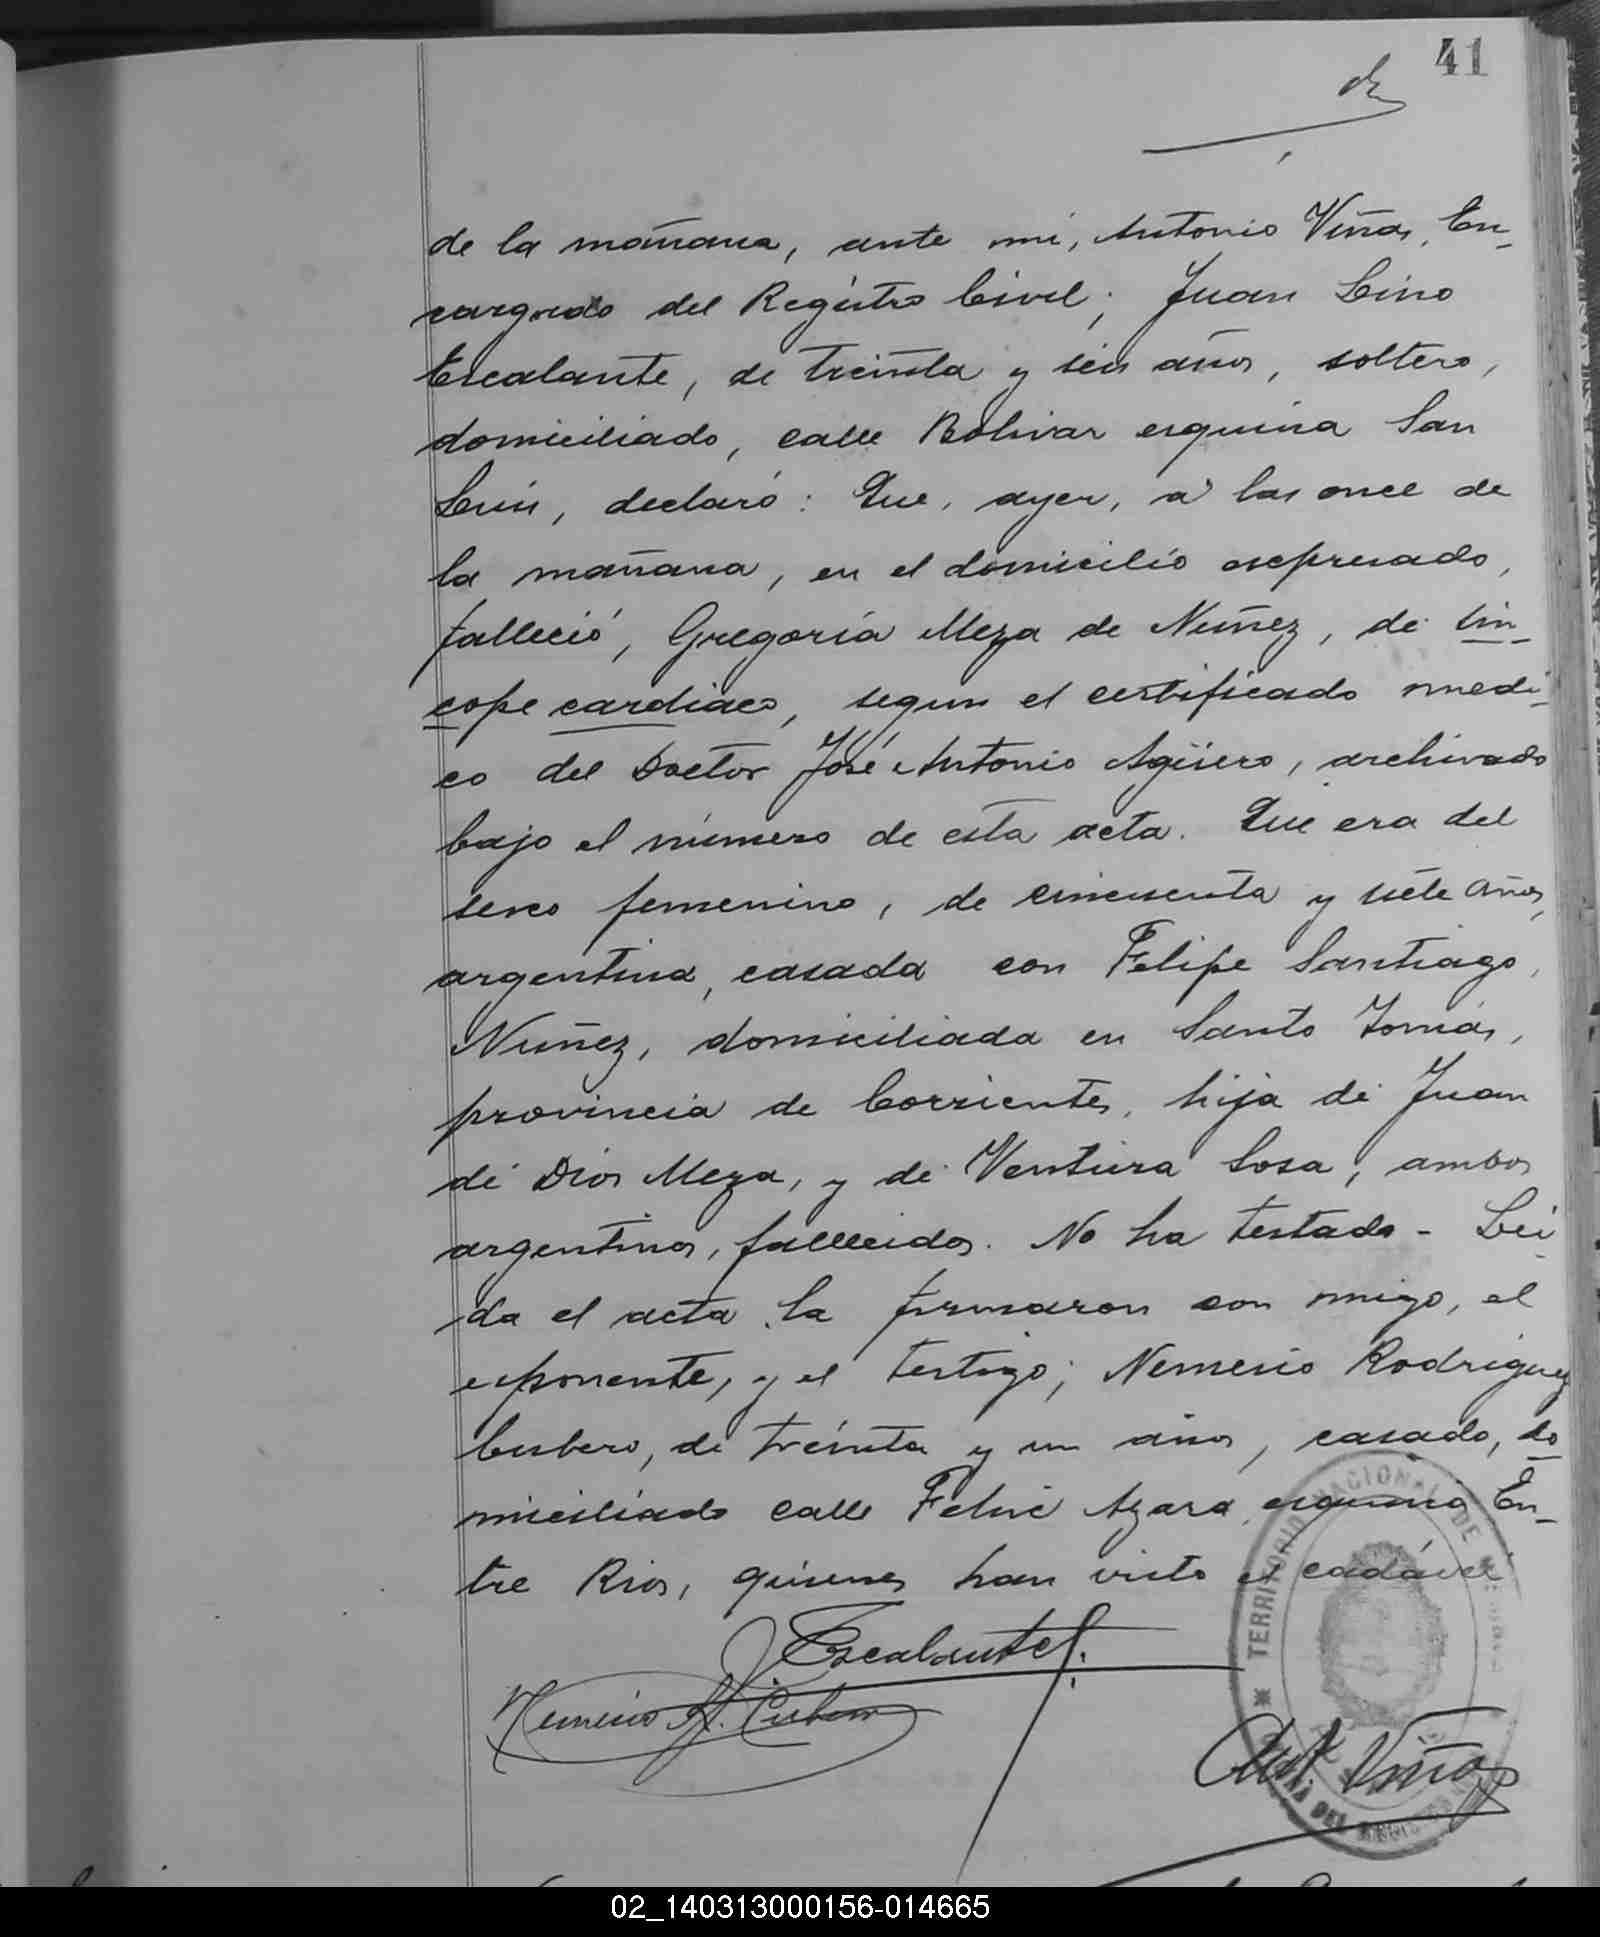 41
de la mañana, ante mi, Antonio Viñas, En-
cargado del Registro Civil; Juan Lino
Escalante, de treinta y seis años, soltero,
domiciliado, calle Bolivar esquina San
Luis, declaró: Que, ayer, á las once de
la mañana, en el domicilio expresado,
falleció, Gregoria Meza de Nuñez, de sin-
cope cardiaco, segun el certificado medi-
co del Doctor José Antonio Agüero, archivado
bajo el número de esta acta. Que era del
sexo femenino, de cincuenta y siete años,
argentina, casada con Felipe Santiago
Nuñez, domiciliada en Santo Tomás,
provincia de Corrientes, hija de Juan
de Dios Meza, y de Ventura Sosa, ambos
argentinos, fallecidos. No ha testado - Lei-
da el acta la firmaron con migo, el
exponente, y el testigo; Nemesio Rodriguez
Cubero, de treinta y un años, casado, do
miciliado calle Felix Azara esquina En-
tre Rios, quienes han visto el cadáver
J. L. Escalante
Nemesio R. Cubero
Ant. Viñas
TERRITORIO NACIONAL DE MISIONES
DEL REGISTRO
02_140313000156-014665